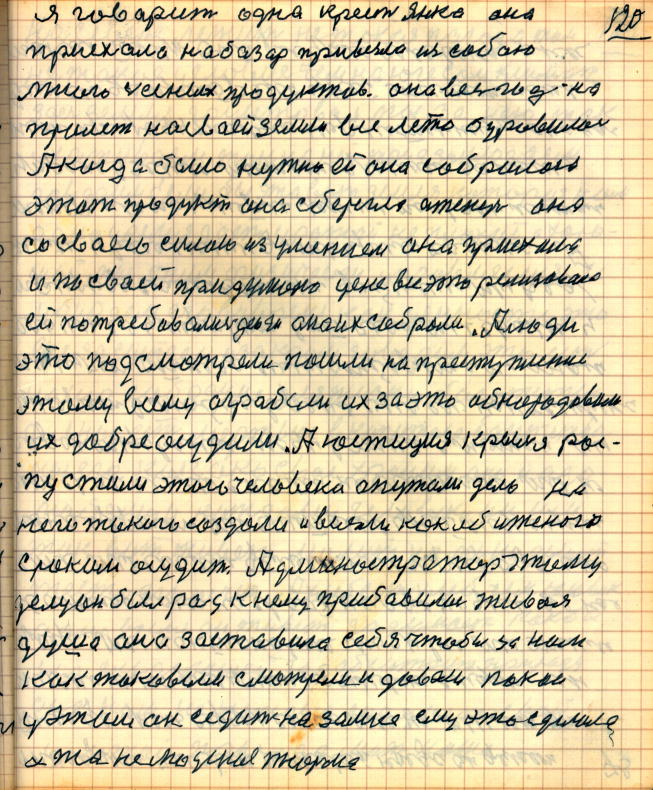 я говарит одна крестьянка она 120
приехала на базар привезла из собаю
много ценных продуктов. она весь год на
на сваей земли все лето
А когда было нужно ей она собралась
этот продукт она сберегла а теперь она
со сваею силаю из умением она приехала
и по сваей придумано цене все это
ей потребовались деньги она их собрала. А люди
это подсмотрели пошли на преступление
этому всему ограбели их за это обнородовали
их добре осудили. А юстиция крыля рас-
пустили этого человека опутали дель на
него такого создали и взяли как
сроком осудит. Администратор этому
делу он был рад к нему прибавилась живая
душа она заставила себя чтобы за ним
как таковым смотрели и довали покой
у этом он седит на замке ему это сделала